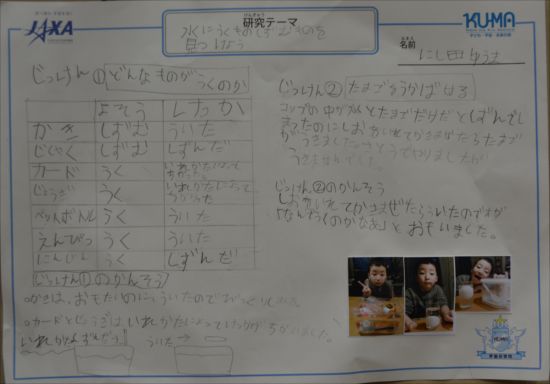 JAXA
けんきゅう
研究テーマ
水にうくものしずむものを
見つけよう
KU-MA
なまえ
名前 にし田 ゆうき
じっけん① どんなものがうくのか
よそう けっか
かき しずむ ういた
じしゃく しずむ しずんだ
カード うく いれかたによって
じょうぎ うく いれかたによって
ペットボトル うく ういた
えんぴつ うく ういた
にんじん うく しずんだ
じっけん①のかんそう
○かきは、おもたいのにういたのでびっくりしました。
○カードとじょうぎはいれかたによってけっかがちがいました。
いれかた しずんだ ういた
じっけん② たまごをうかばせる
コップの中が水とたまごだけだとしずんで
しおをいれてかきまぜたらたまご
がうきました。さとうでやりましたが
うきませんでした。
じっけん②のかんそう
しおをいれてかきまぜたらういたのでわが
「なんでうくのかなあ」とおもいました。
KU-MA